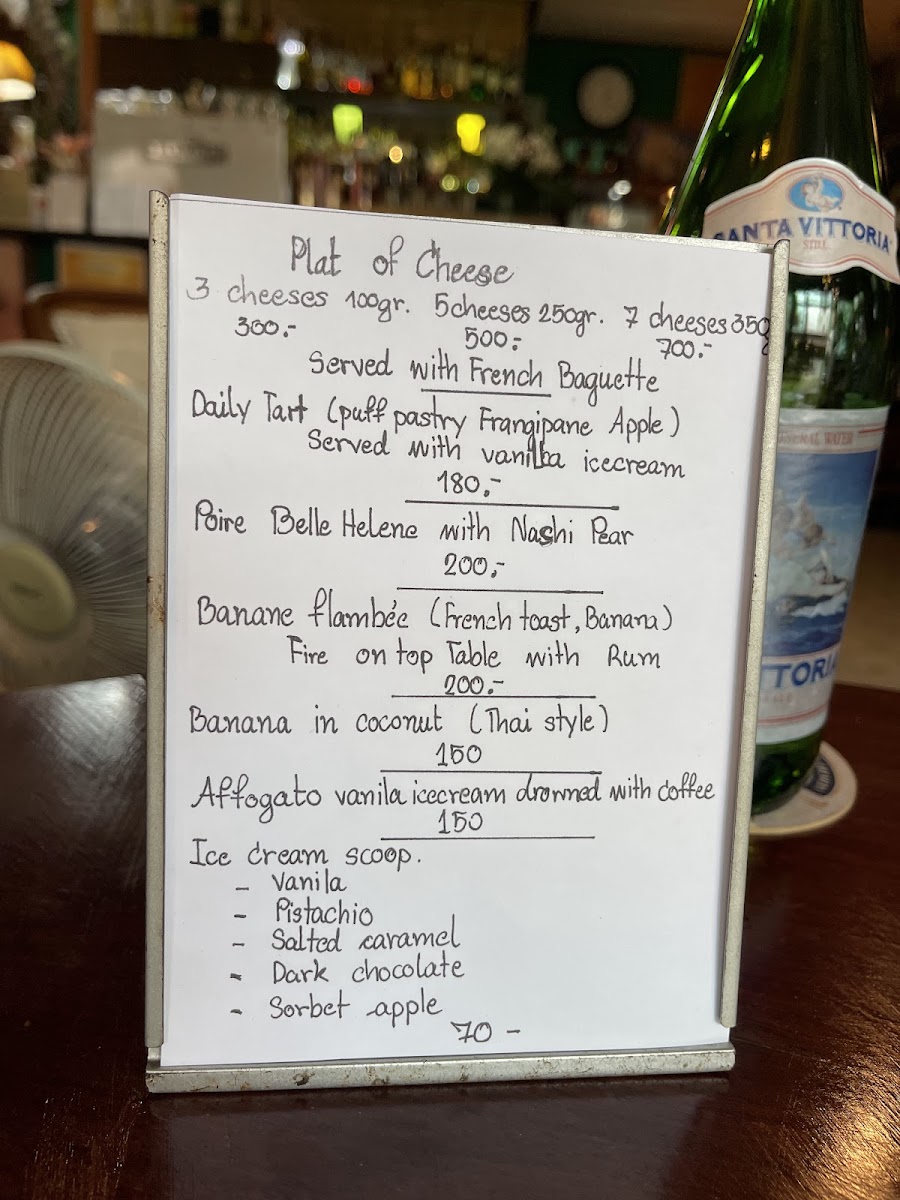 Plat of Cheese
3 cheeses 100gr. 5cheeses 250gr. 7 cheeses 350g
300.- 500.- 700.-
Served with French Baguette
Daily Tart (puff pastry Frangipane Apple)
Served with vanilla icecream
180.-
Poire Belle Helene with Nashi Pear
200.-
Banane flambée (French toast, Banana)
Fire on top Table with Rum
200.-
Banana in coconut (Thai style)
150
Affogato vanila icecream drowned with coffee
150
Ice cream scoop.
- Vanila
- Pistachio
- Salted caramel
- Dark chocolate
- Sorbet apple
70 -
SANTA VITTORIA
STILL
MINERAL WATER
TTORIA